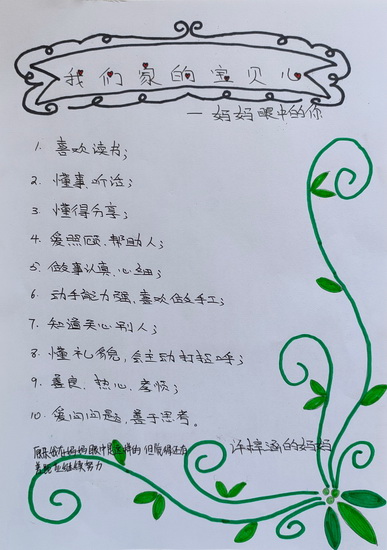 我们家的宝贝儿
—妈妈眼中的你
1. 喜欢读书;
2. 懂事、听话;
3. 懂得分享;
4. 爱照顾、帮助人;
5. 做事认真、心细;
6. 动手能力强、喜欢做手工;
7. 知道关心别人;
8. 懂礼貌,会主动打招呼;
9. 善良、热心、孝顺;
10. 爱问问题、善于思考。
的妈妈
原来我在妈妈眼中是这样的 但
继续努力